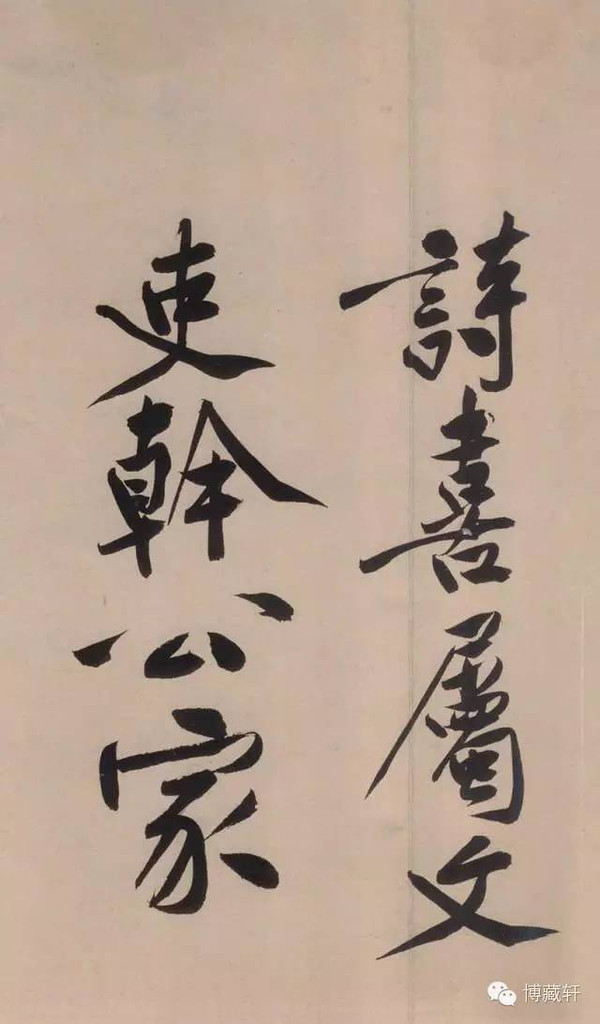 詩喜屬文
吏幹公家
博藏轩